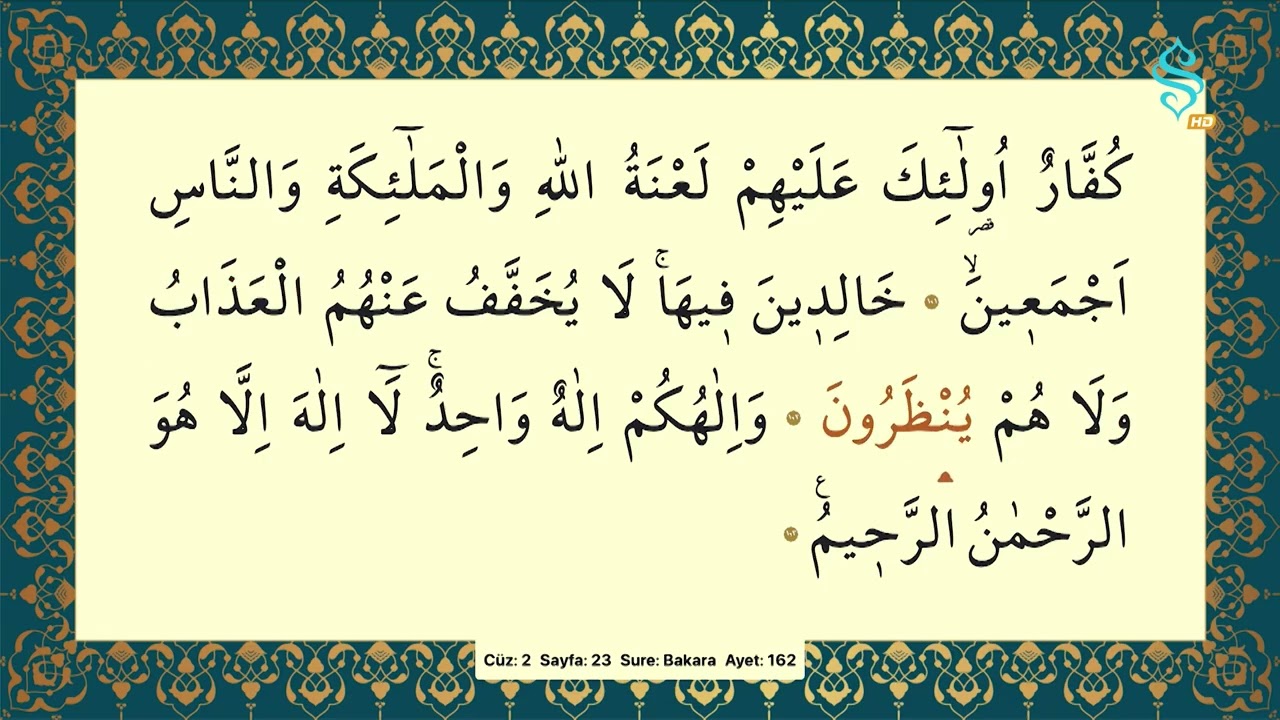 كُفَّارٌ اُو۬لٰٓئِكَ عَلَيْهِمْ لَعْنَةُ اللّٰهِ وَالْمَلٰٓئِكَةِ وَالنَّاسِ
اَجْمَع۪ينَۙ ١٦١ خَالِد۪ينَ ف۪يهَاۚ لَا يُخَفَّفُ عَنْهُمُ الْعَذَابُ
وَلَا هُمْ يُنْظَرُونَ ١٦٢ وَاِلٰهُكُمْ اِلٰهٌ وَاحِدٌۚ لَٓا اِلٰهَ اِلَّا هُوَ
الرَّحْمٰنُ الرَّح۪يمُ۟ ١٦٣
Cüz: 2 Sayfa: 23 Sure: Bakara Ayet: 162
HD